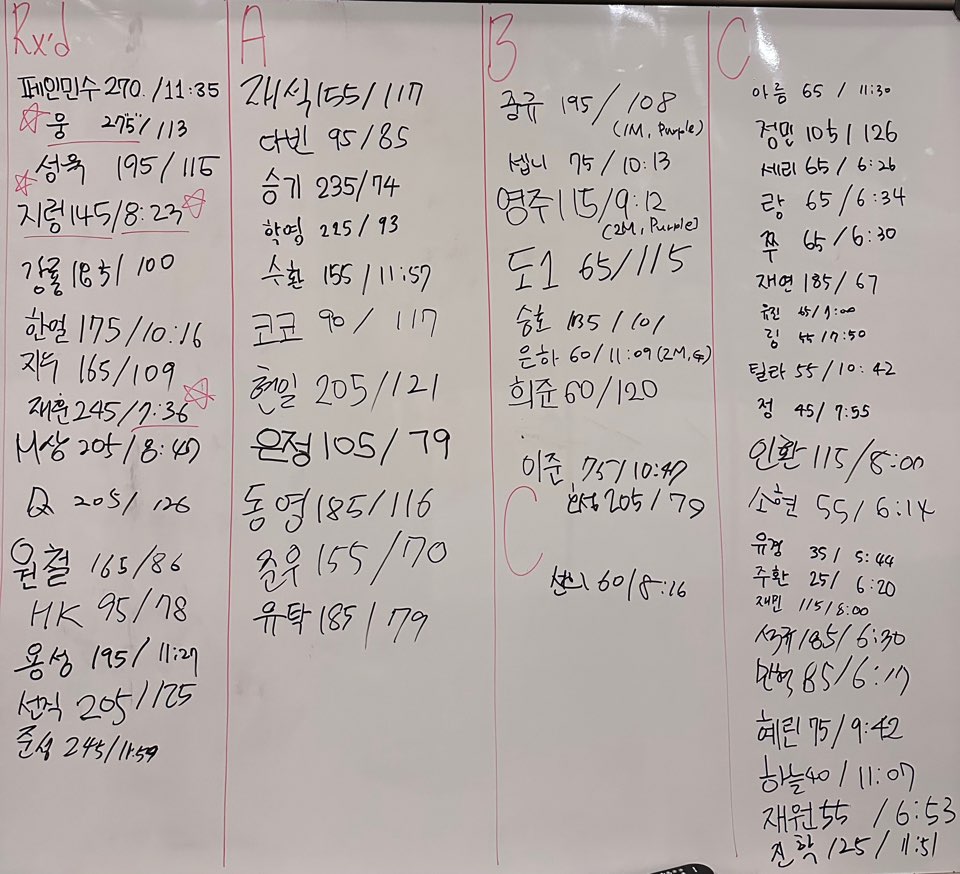 Rx'd
페인민수 270. /11:35
웅 275/113
성욱 195/115
지렁 145/8:23
강롱 185/100
한열 175/10:16
지두 165/109
재훈 245/7:36
M상 205/8:47
Q 205/126
원철 165/86
HK 95/78
용성 195/11:27
선직 205/125
준성 245/11:59
A
재석 155/117
다빈 95/85
승기 235/74
학영 225/93
수환 155/11:57
코코 90/117
현일 205/121
은정 105/79
동영 185/116
준우 155/70
유탁 185/79
B
종규 195/108
(1M, Purple)
셉니 75/10:13
영주 115/9:12
(2M, Purple)
도1 65/115
승호 135/101
은하 60/11:09 (2M,
희준 60/120
이준 75/10:47
205/79
C
60/8:16
C
아름 65/11:30
정민 105/126
세리 65/6:26
랑 65/6:34
쭈 65/6:30
재연 185/67
유진 65/7:00
링 55/7:50
틸라 55/10:42
정 45/7:55
인환 115/8:00
소현 55/6:14
유경 35/5:44
주환 25/6:20
재민 115/8:00
석규 185/6:30
민혁 85/6:17
혜린 75/9:42
하늘 40/11:07
재원 55/6:53
진학 125/11:51